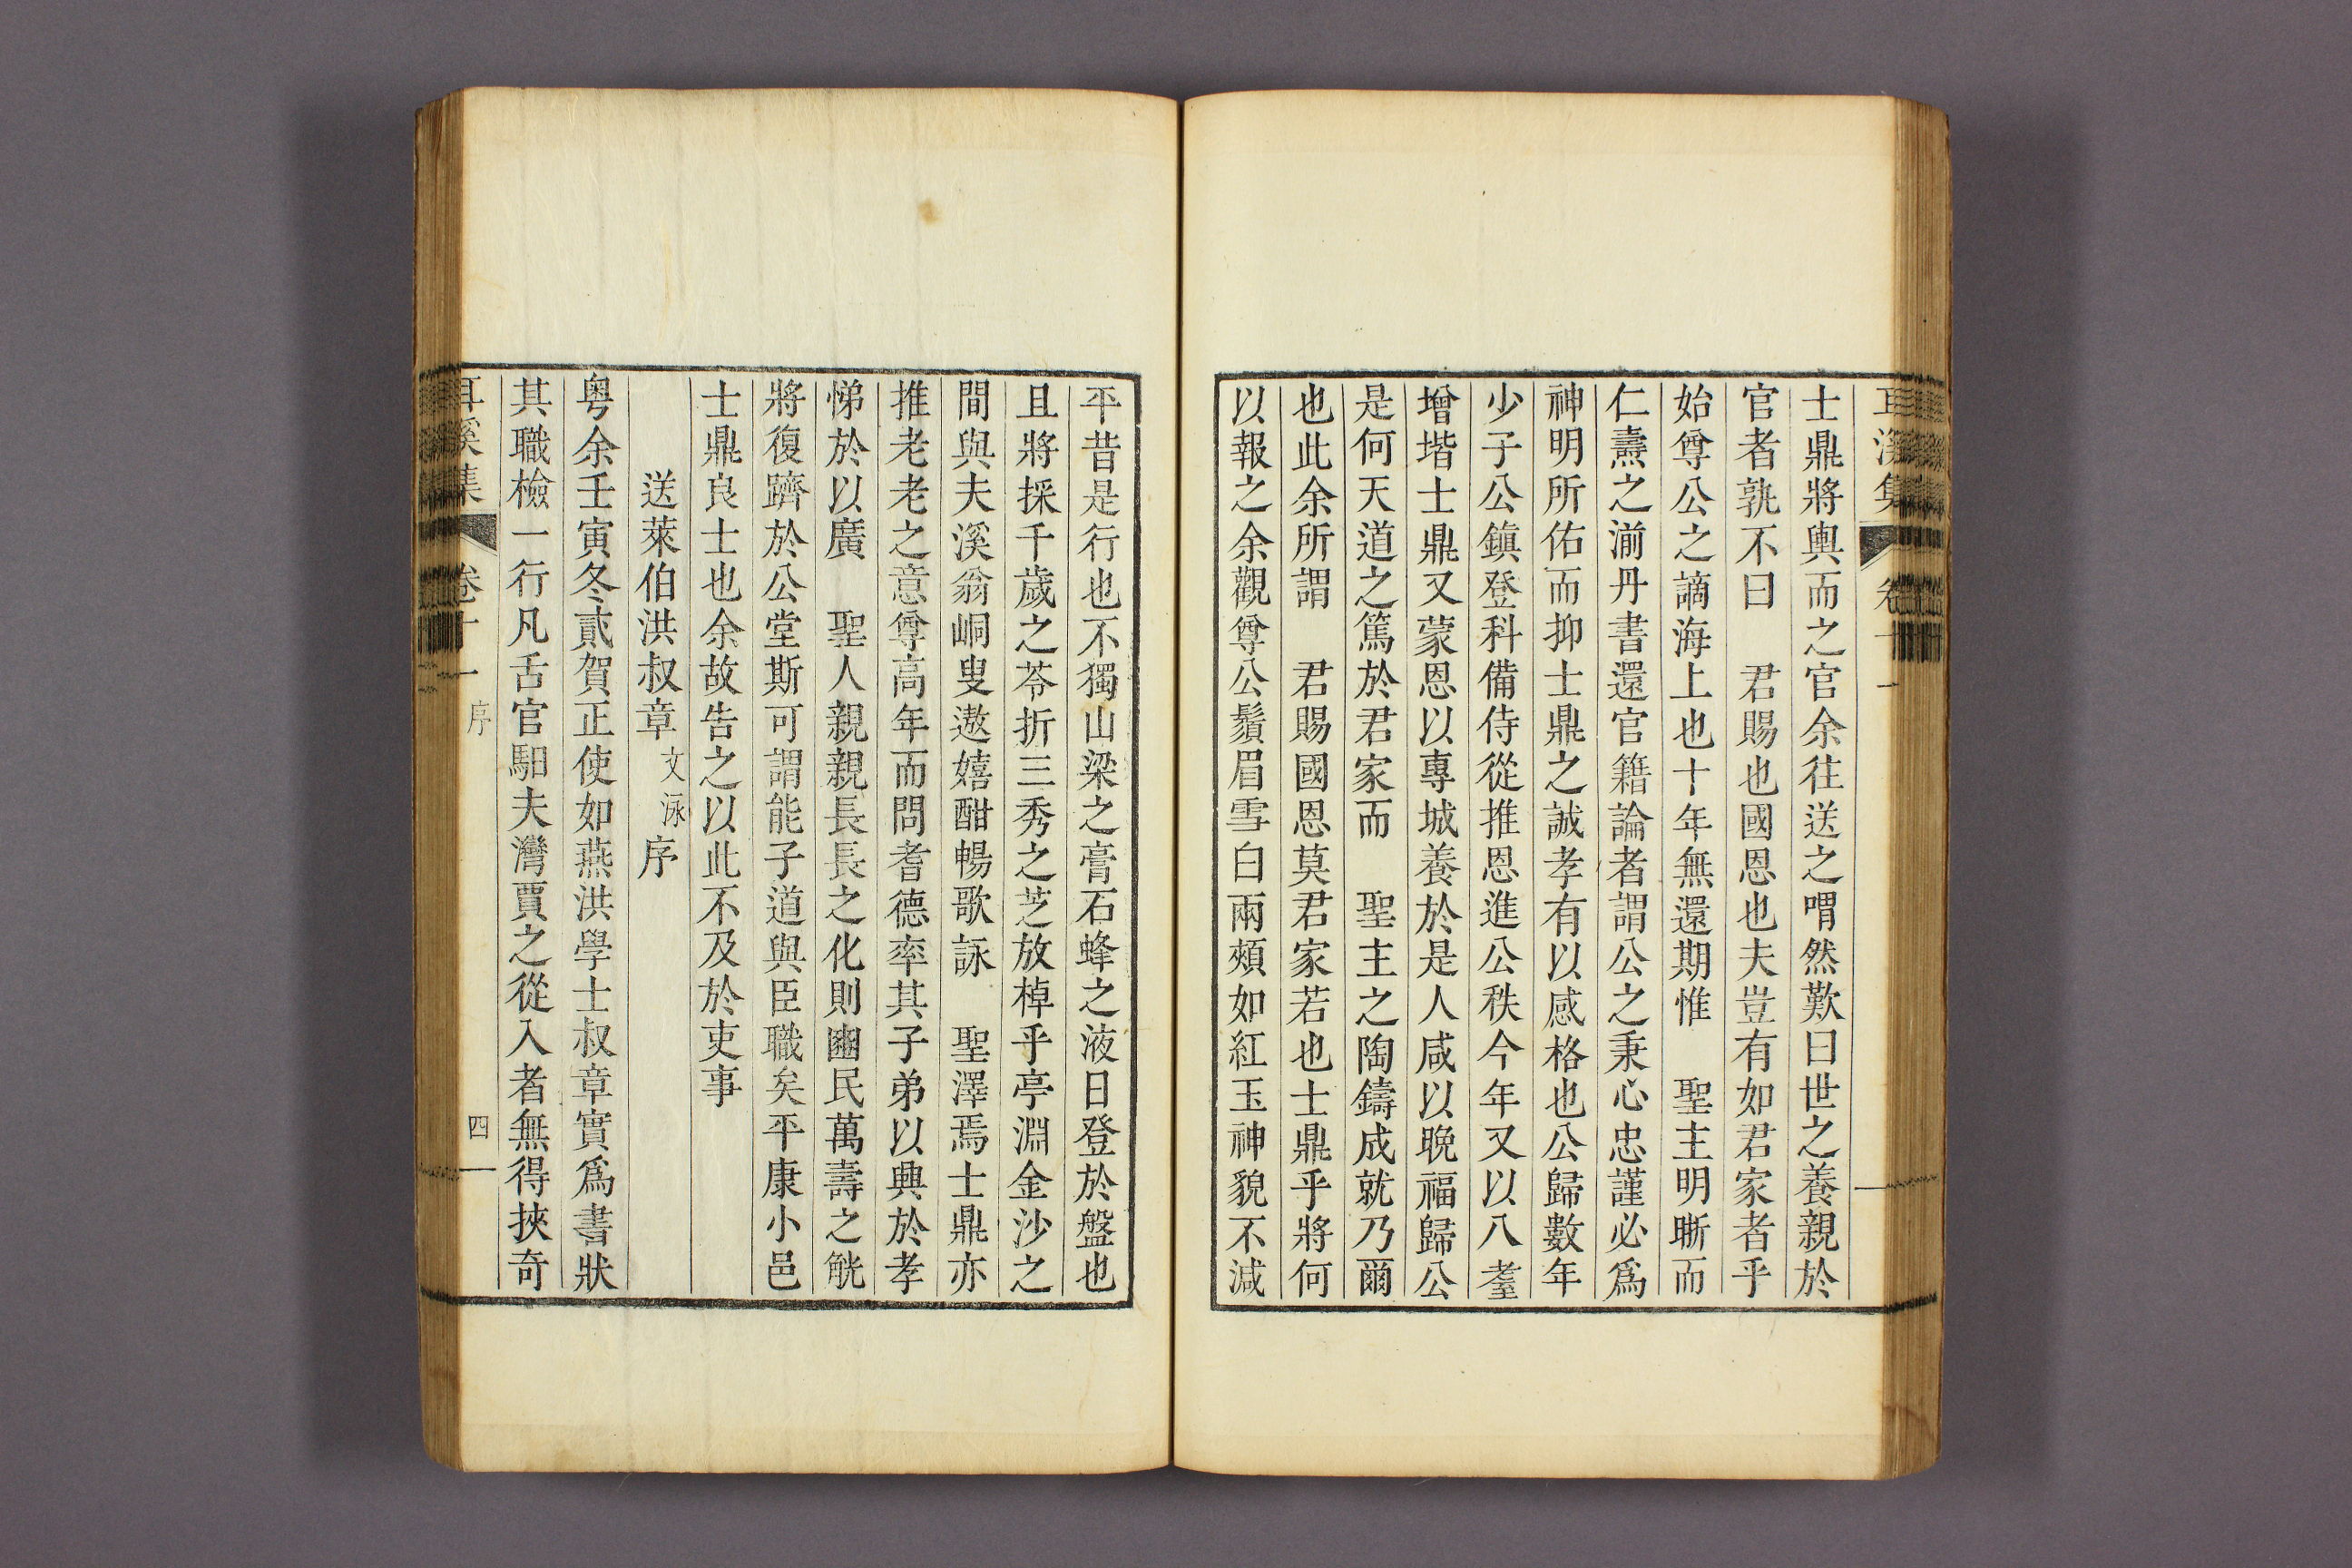 士鼎將輿而之官余往送之喟然歎曰世之養親於
官者孰不曰　君賜也國恩也夫豈有如君家者乎
始尊公之謫海上也十年無還期惟　聖主明晣而
仁燾之湔丹書還官籍論者謂公之秉心忠謹必爲
神明所佑而抑士鼎之誠孝有以感格也公歸數年
少子公鎭登科備侍從推恩進公秩今年又以八耋
增堦士鼎又蒙恩以專城養於是人咸以晩福歸公
是何天道之篤於君家而　聖主之陶鑄成就乃爾
也此余所謂　君賜國恩莫君家若也士鼎乎將何
以報之余觀尊公鬚眉雪白兩頰如紅玉神貌不減
平昔是行也不獨山梁之膏石蜂之液日登於盤也
且將採千歲之苓折三秀之芝放棹乎亭淵金沙之
間與夫溪翁峒叟遨嬉酣暢歌詠　聖澤焉士鼎亦
推老老之意尊高年而問耆德率其子弟以興於孝
悌於以廣　聖人親親長長之化則豳民萬壽之觥
將復躋於公堂斯可謂能子道與臣職矣平康小邑
士鼎良士也余故告之以此不及於吏事
送萊伯洪叔章文泳序
粤余壬寅冬貳賀正使如燕洪學士叔章實爲書狀
其職檢一行凡舌官馹夫灣賈之從入者無得挾奇
耳溪集　卷十一　序　四